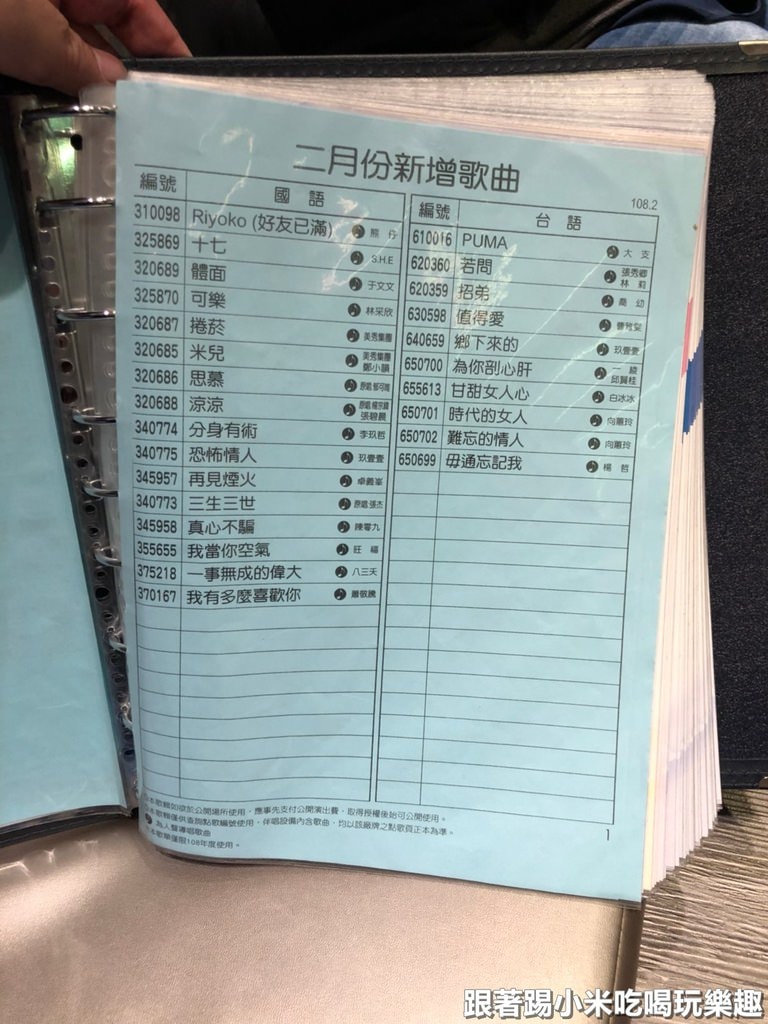 二月份新增歌曲
108.2
編號 國語
310098 Riyoko (好友已滿) 熊仔
325869 十七 S.H.E
320689 體面 于文文
325870 可樂 林采欣
320687 捲菸 美秀集團
320685 米兒 美秀集團 鄭小韻
320686 思慕 原唱:郁可唯
320688 涼涼 原唱:楊宗緯 張碧晨
340774 分身有術 李玖哲
340775 恐怖情人 玖壹壹
345957 再見煙火 卓義峯
340773 三生三世 原唱:張杰
345958 真心不騙 陳零九
355655 我當你空氣 旺福
375218 一事無成的偉大 八三夭
370167 我有多麼喜歡你 蕭敬騰
編號 台語
610016 PUMA 大支
620360 若問 張秀卿 林莉
620359 招弟 喬幼
630598 值得愛 曹雅雯
640659 鄉下來的 玖壹壹
650700 為你剖心肝 一線 邱賢桂
655613 甘甜女人心 白冰冰
650701 時代的女人 向蕙玲
650702 難忘的情人 向蕙玲
650699 毋通忘記我 楊哲
本歌輯如欲於公開場所使用，應事先支付公開演出費，取得授權後始可公開使用。
本歌輯僅供查詢點歌編號使用，伴唱設備內含歌曲，均以該廠牌之點歌頁正本為準。
為人聲導唱歌曲
本歌單僅限108年度使用。
1
跟著踢小米吃喝玩樂趣